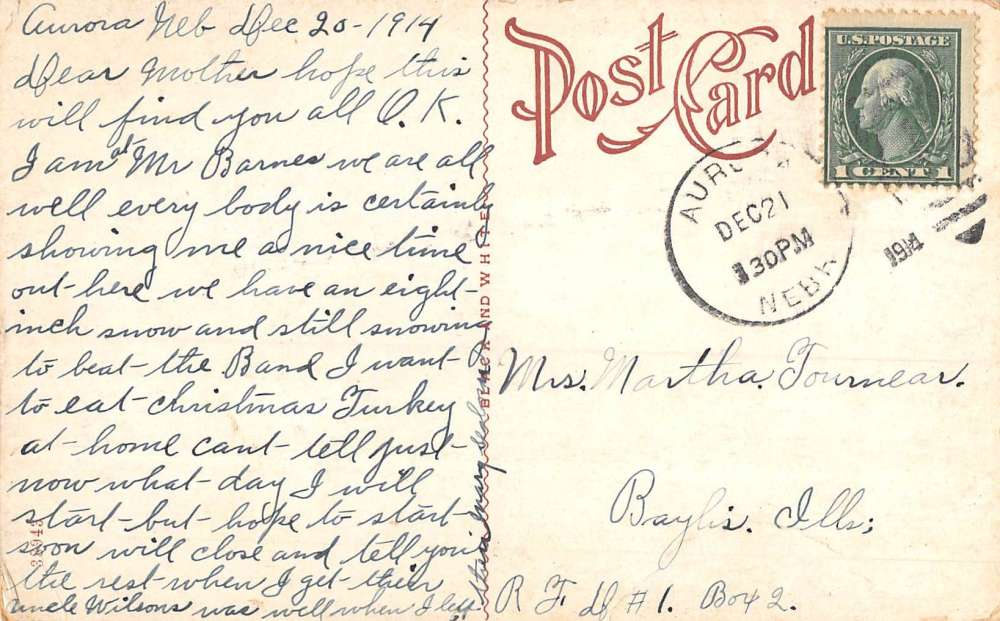 Aurora Neb Dec 20-1914
Dear Mother hope this
will find you all O.K.
I am at Mr Barnes we are all
well every body is certainly
showing me a nice time
out-here we have an eight-
inch snow and still snowing
to beat-the Band I want-
to eat-christmas Turkey
at-home cant-tell just-
now what-day I will
start-but-hope to start-
soon will close and tell you
the rest-when I get-their
uncle Wilsons was well when I left
BLACK AND WHITE
Post Card
U.S. POSTAGE
1 CENT 1
AURORA
DEC 21
30 PM
NEBR
1914
Mrs. Martha. Tournear.
Baylis. Ills;
R F D #1. Box 2.